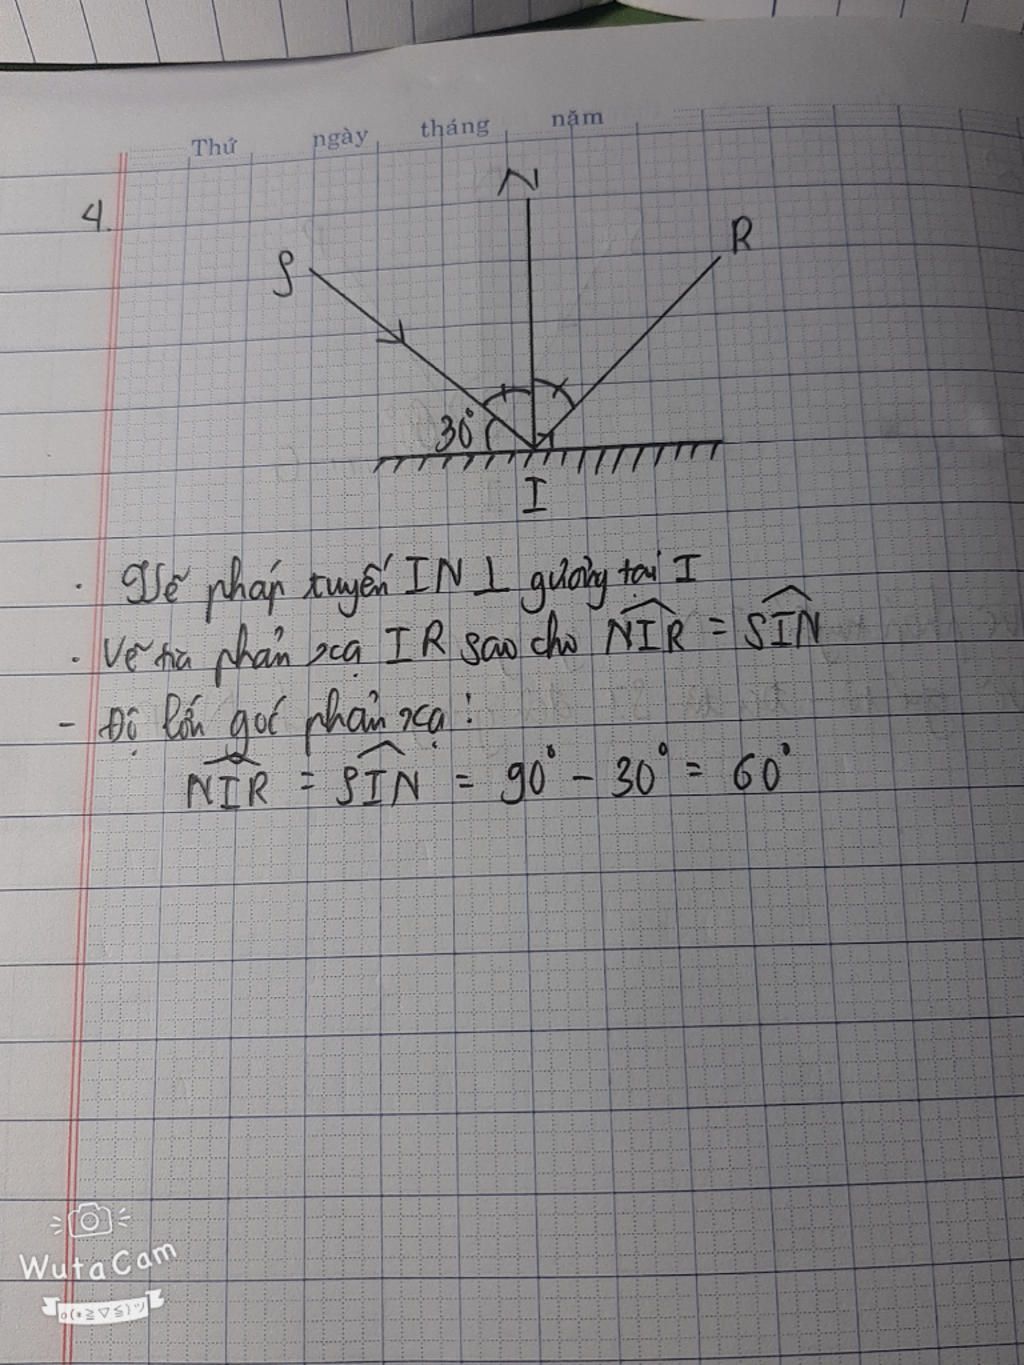 Thứ ngày tháng năm
4.
N
S
R
30°
I
. Vẽ pháp tuyến IN ⊥ gương tại I
. Vẽ tia phản xạ IR sao cho NIR = SIN
- Độ lớn góc phản xạ :
NIR = SIN = 90° - 30° = 60°
WutaCam
o(*≧▽≦)ツ